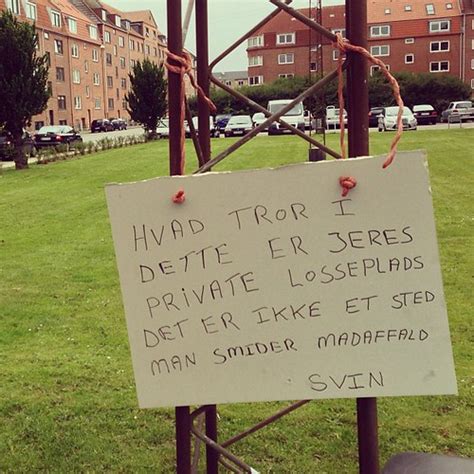 HVAD TROR I
DETTE ER JERES
PRIVATE LOSSEPLADS
DET ER IKKE ET STED
MAN SMIDER MADAFFALD
SVIN